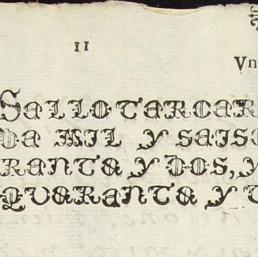 II
Vn
SELLO TERCER
DE MIL Y SEISC
RENTA Y DOS, Y
QVARENTA Y T